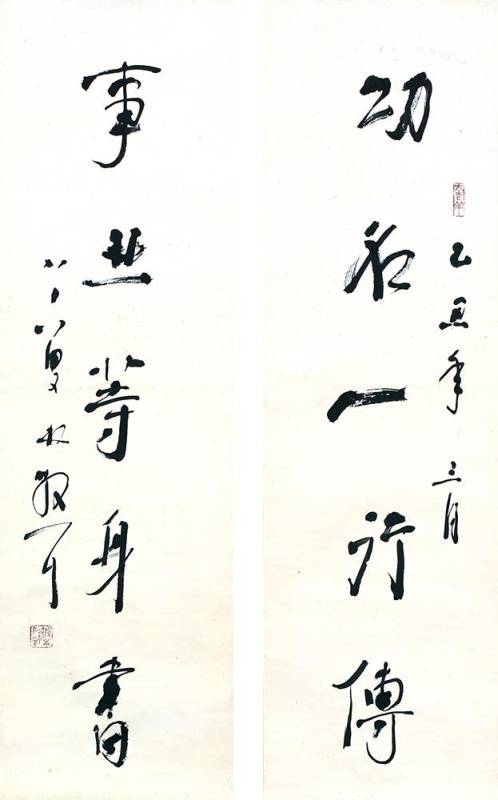 乙丑年三月
功名一行傳
事業等身書
八十八叟林散耳